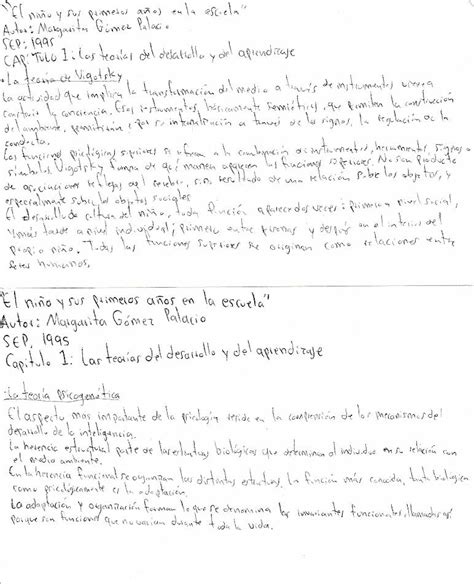 "El niño y sus primeros años en la escuela"
Autor: Margarita Gómez Palacio
SEP; 1995
CAPITULO I: Las teorías del desarrollo y del aprendizaje
• La teoría de Vigotsky
La actividad que implica la transformación del medio a través de instrumentos viene a
construir la conciencia. Esos instrumentos, básicamente semióticos, que permiten la construcción
del ambiente, permitirán por su internalización a través de los signos, la regulación de la
conducta.
Las funciones psicológicas superiores se refieren a la combinación de instrumentos, herramientas, signos o
símbolos. Vigotsky de qué manera aparecen las funciones superiores. No son producto
de asociaciones reflejas del cerebro, son resultado de una relación sobre los objetos, y
especialmente sobre los objetos sociales
El desarrollo de cultura del niño, toda función aparece dos veces: primero a nivel social,
y más tarde a nivel individual; primero entre personas y después en el interior del
propio niño. Todas las funciones superiores se originan como relaciones entre
seres humanos.
"El niño y sus primeros años en la escuela"
Autor: Margarita Gómez Palacio
SEP, 1995
Capitulo 1: Las teorías del desarrollo y del aprendizaje
- La teoría Psicogenética
El aspecto mas importante de la psicología reside en la comprensión de los mecanismos del
desarrollo de la inteligencia.
La herencia estructural parte de las estructuras biológicas que determinan al individuo en su relación con
el medio ambiente.
Con la herencia funcional se organizan las distintas estructuras. La función más conocida, tanto biológica
como psicológicamente es la adaptación.
La adaptación y organización forman lo que se denomina las invariantes funcionales, llamadas así
porque son funciones que no varían durante toda la vida.